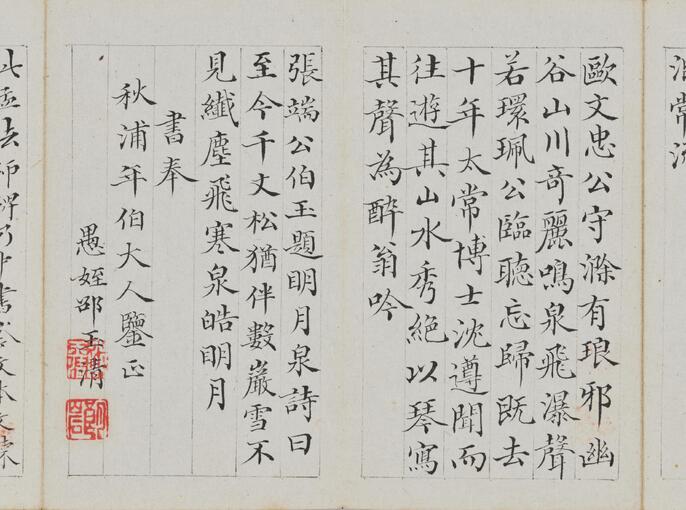 沿常沂
歐文忠公守滁有琅邪幽
谷山川奇麗鳴泉飛瀑聲
若環珮公臨聽忘歸既去
十年太常博士沈遵聞而
往遊其山水秀絕以琴寫
其聲為醉翁吟
張端公伯玉題明月泉詩曰
至今千丈松猶伴數巖雪不
見纖塵飛寒泉皓明月
書奉
秋浦年伯大人鑒正
愚姪邵玉清